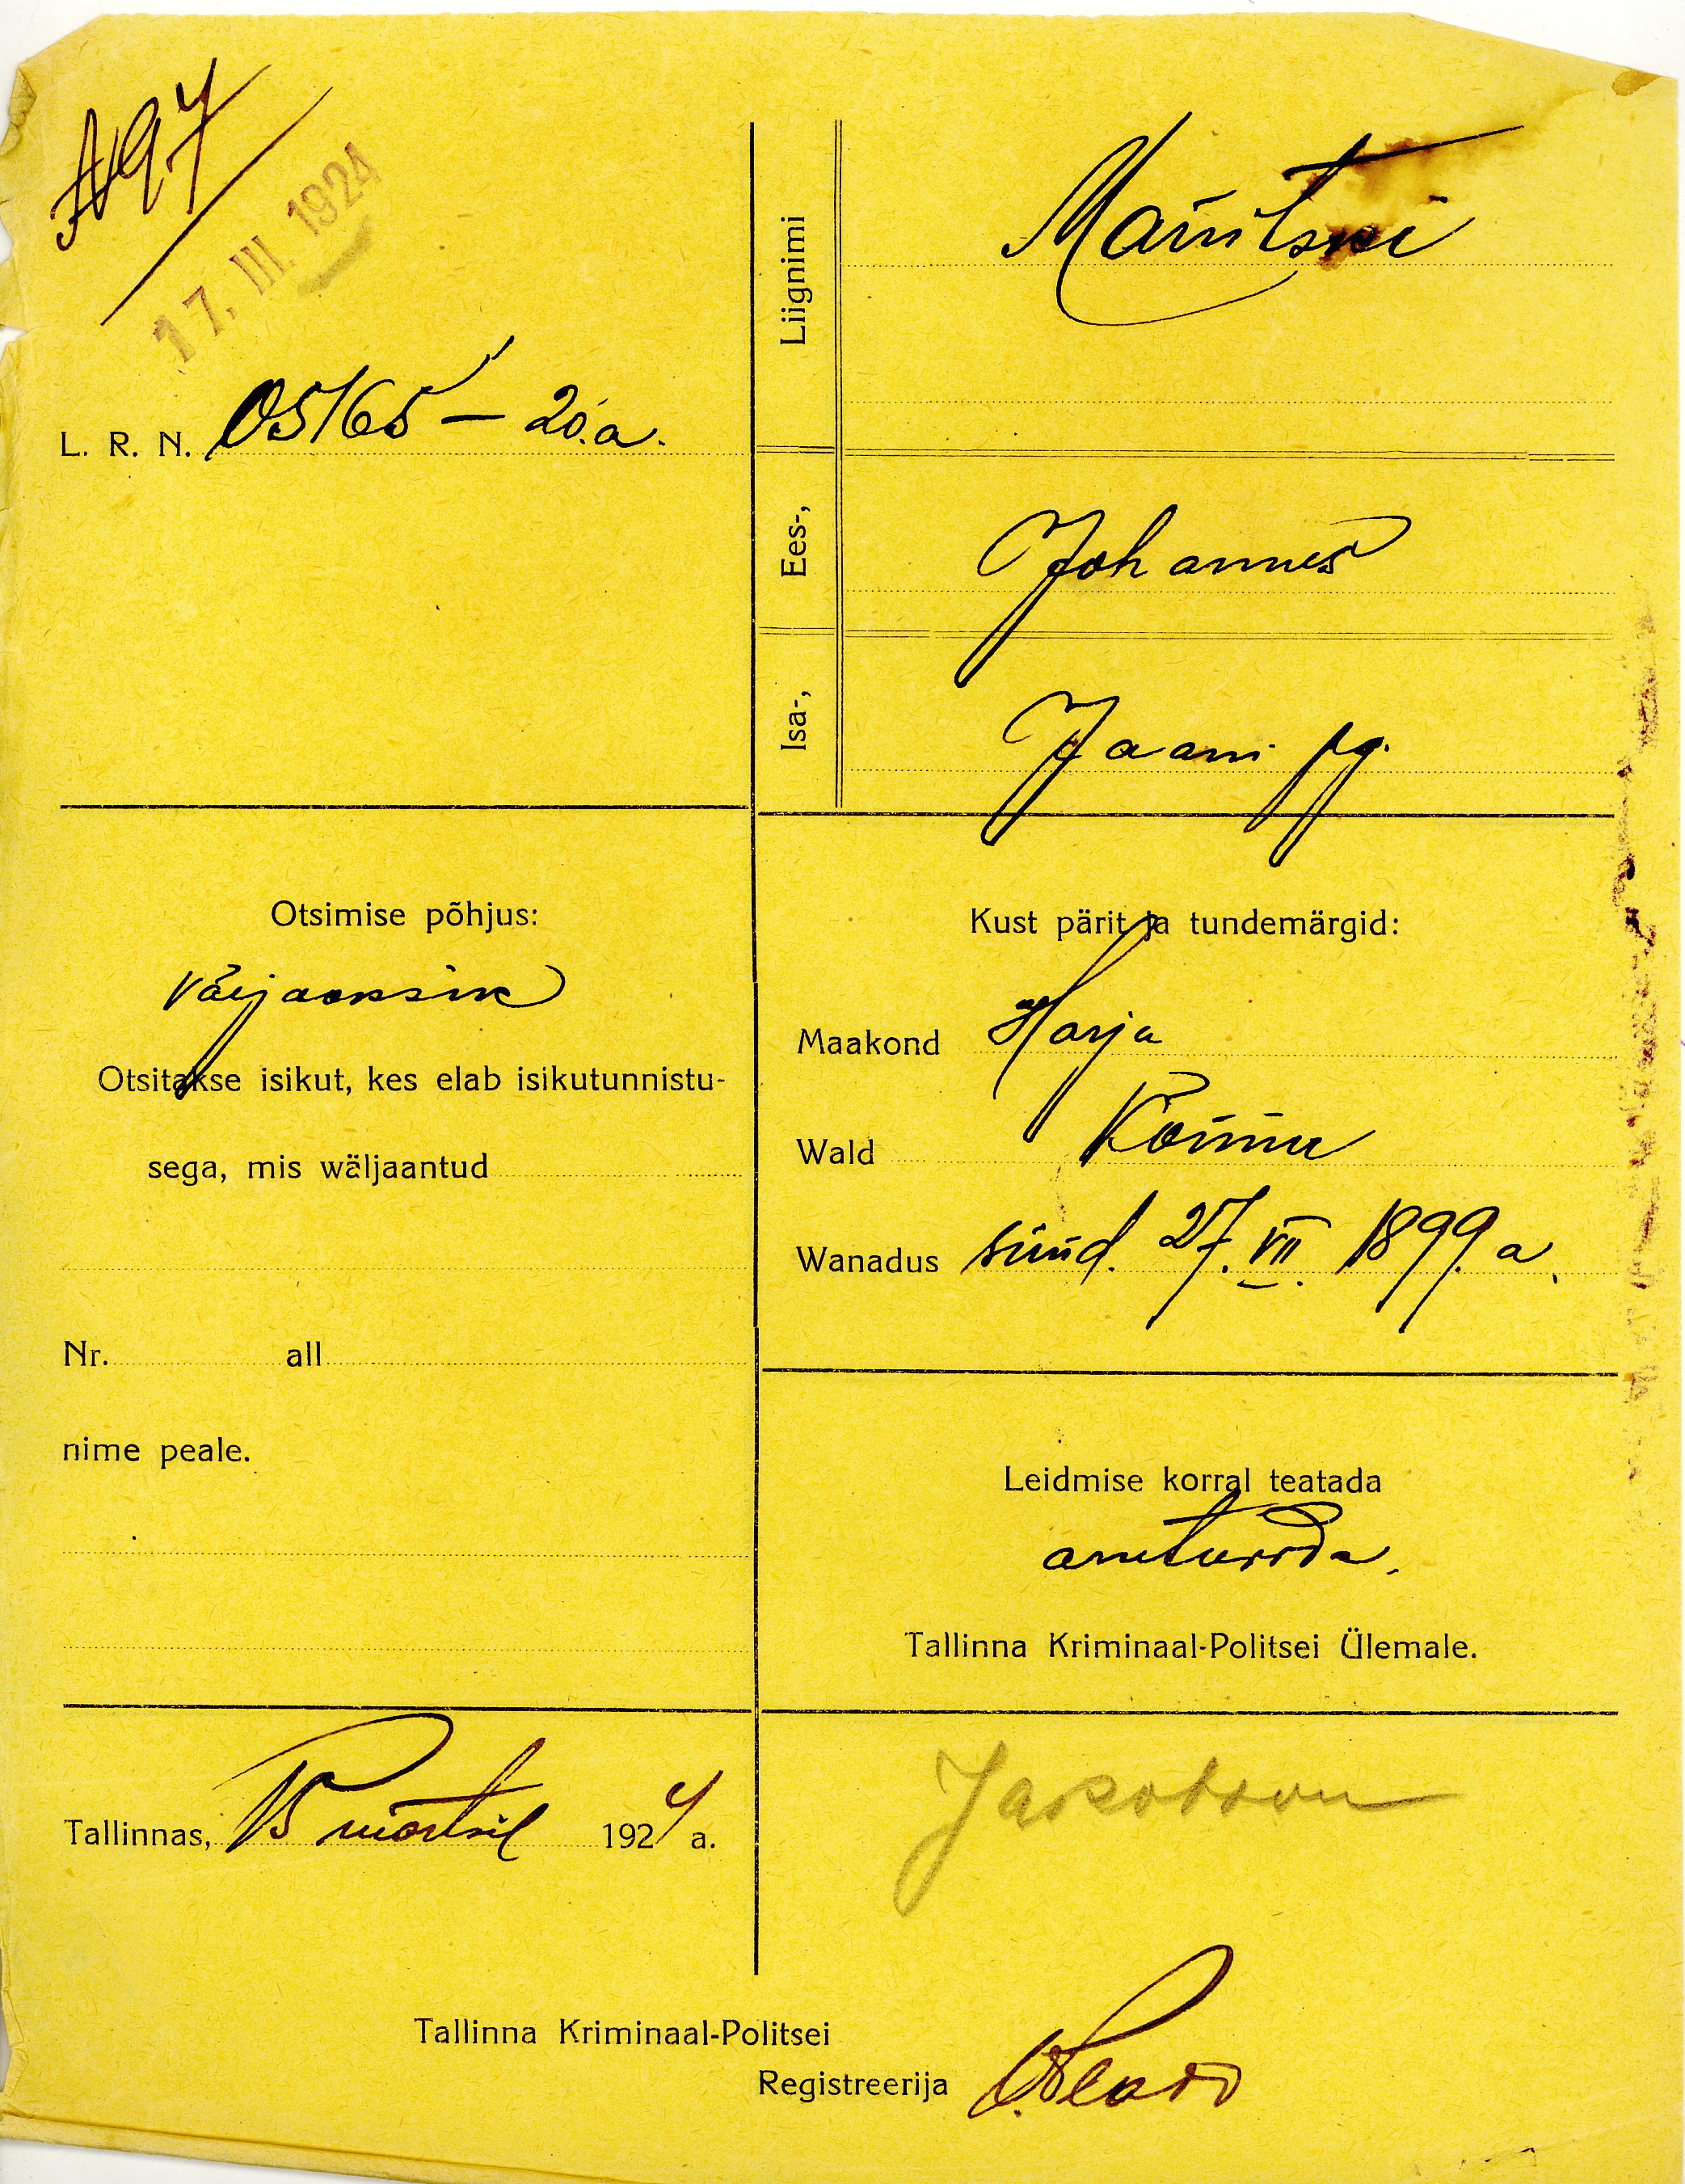 A97
17. III. 1924
L. R. N. 05165 – 20.a.
Liignimi
Ees-, Johannes
Isa-, Jaani pg.
Otsimise põhjus:
väejooksik
Otsitakse isikut, kes elab isikutunnistu-
sega, mis wäljaantud
Nr. all
nime peale.
Kust pärit ja tundemärgid:
Maakond Harja
Wald Kõnnu
Wanadus sünd. 27. VII. 1899. a.
Leidmise korral teatada
Tallinna Kriminaal-Politsei Ülemale.
Tallinnas, 15 märtsil 1924 a.
Jakobson
Tallinna Kriminaal-Politsei
Registreerija